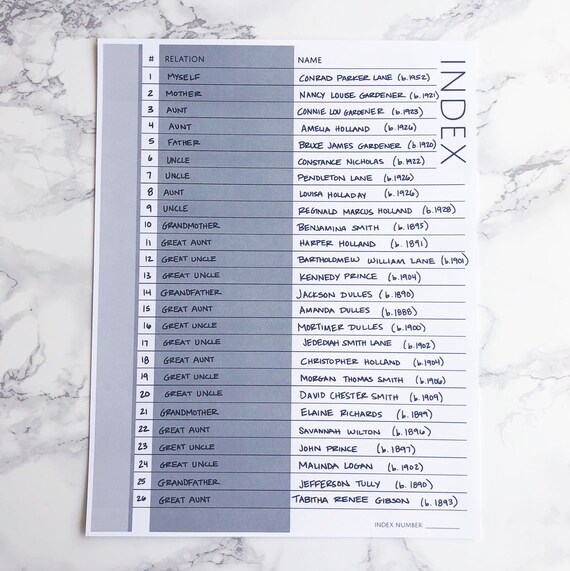 # RELATION NAME
INDEX
1 MYSELF CONRAD PARKER LANE (b.1952)
2 MOTHER NANCY LOUISE GARDENER (b.1921)
3 AUNT CONNIE LOU GARDENER (b.1923)
4 AUNT AMELIA HOLLAND (b.1926)
5 FATHER BRUCE JAMES GARDENER (b.1920)
6 UNCLE CONSTANCE NICHOLAS (b.1922)
7 UNCLE PENDLETON LANE (b.1926)
8 AUNT LOUISA HOLLADAY (b.1926)
9 UNCLE REGINALD MARCUS HOLLAND (b.1928)
10 GRANDMOTHER BENJAMINA SMITH (b.1895)
11 GREAT AUNT HARPER HOLLAND (b.1891)
12 GREAT UNCLE BARTHOLOMEW WILLIAM LANE (b.1901)
13 GREAT UNCLE KENNEDY PRINCE (b.1904)
14 GRANDFATHER JACKSON DULLES (b.1890)
15 GREAT AUNT AMANDA DULLES (b.1888)
16 GREAT UNCLE MORTIMER DULLES (b.1900)
17 GREAT UNCLE JEDEDIAH SMITH LANE (b.1902)
18 GREAT AUNT CHRISTOPHER HOLLAND (b.1904)
19 GREAT UNCLE MORGAN THOMAS SMITH (b.1906)
20 GREAT UNCLE DAVID CHESTER SMITH (b.1909)
21 GRANDMOTHER ELAINE RICHARDS (b.1899)
22 GREAT AUNT SAVANNAH WILTON (b.1896)
23 GREAT UNCLE JOHN PRINCE (b.1897)
24 GREAT UNCLE MALINDA LOGAN (b.1902)
25 GRANDFATHER JEFFERSON TULLY (b.1890)
26 GREAT AUNT TABITHA RENEE GIBSON (b.1893)
INDEX NUMBER: